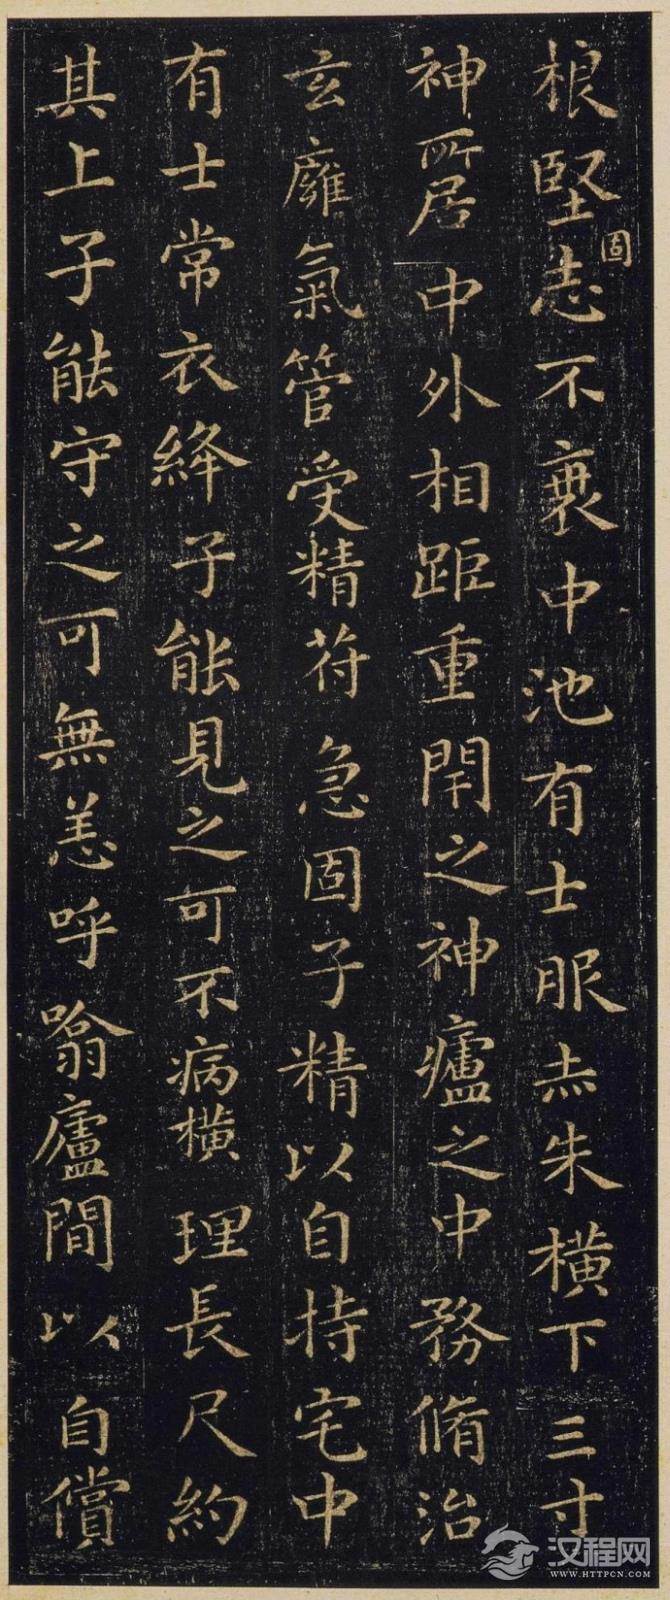 根堅志不衰中池有士服赤朱橫下三寸
固
神所居中外相距重閇之神廬之中務脩治
玄廱氣管受精苻急固子精以自持宅中
有士常衣絳子能見之可不病橫理長尺約
其上子能守之可無恙呼噏廬間以自償
汉程网
WWW.HTTPCN.COM